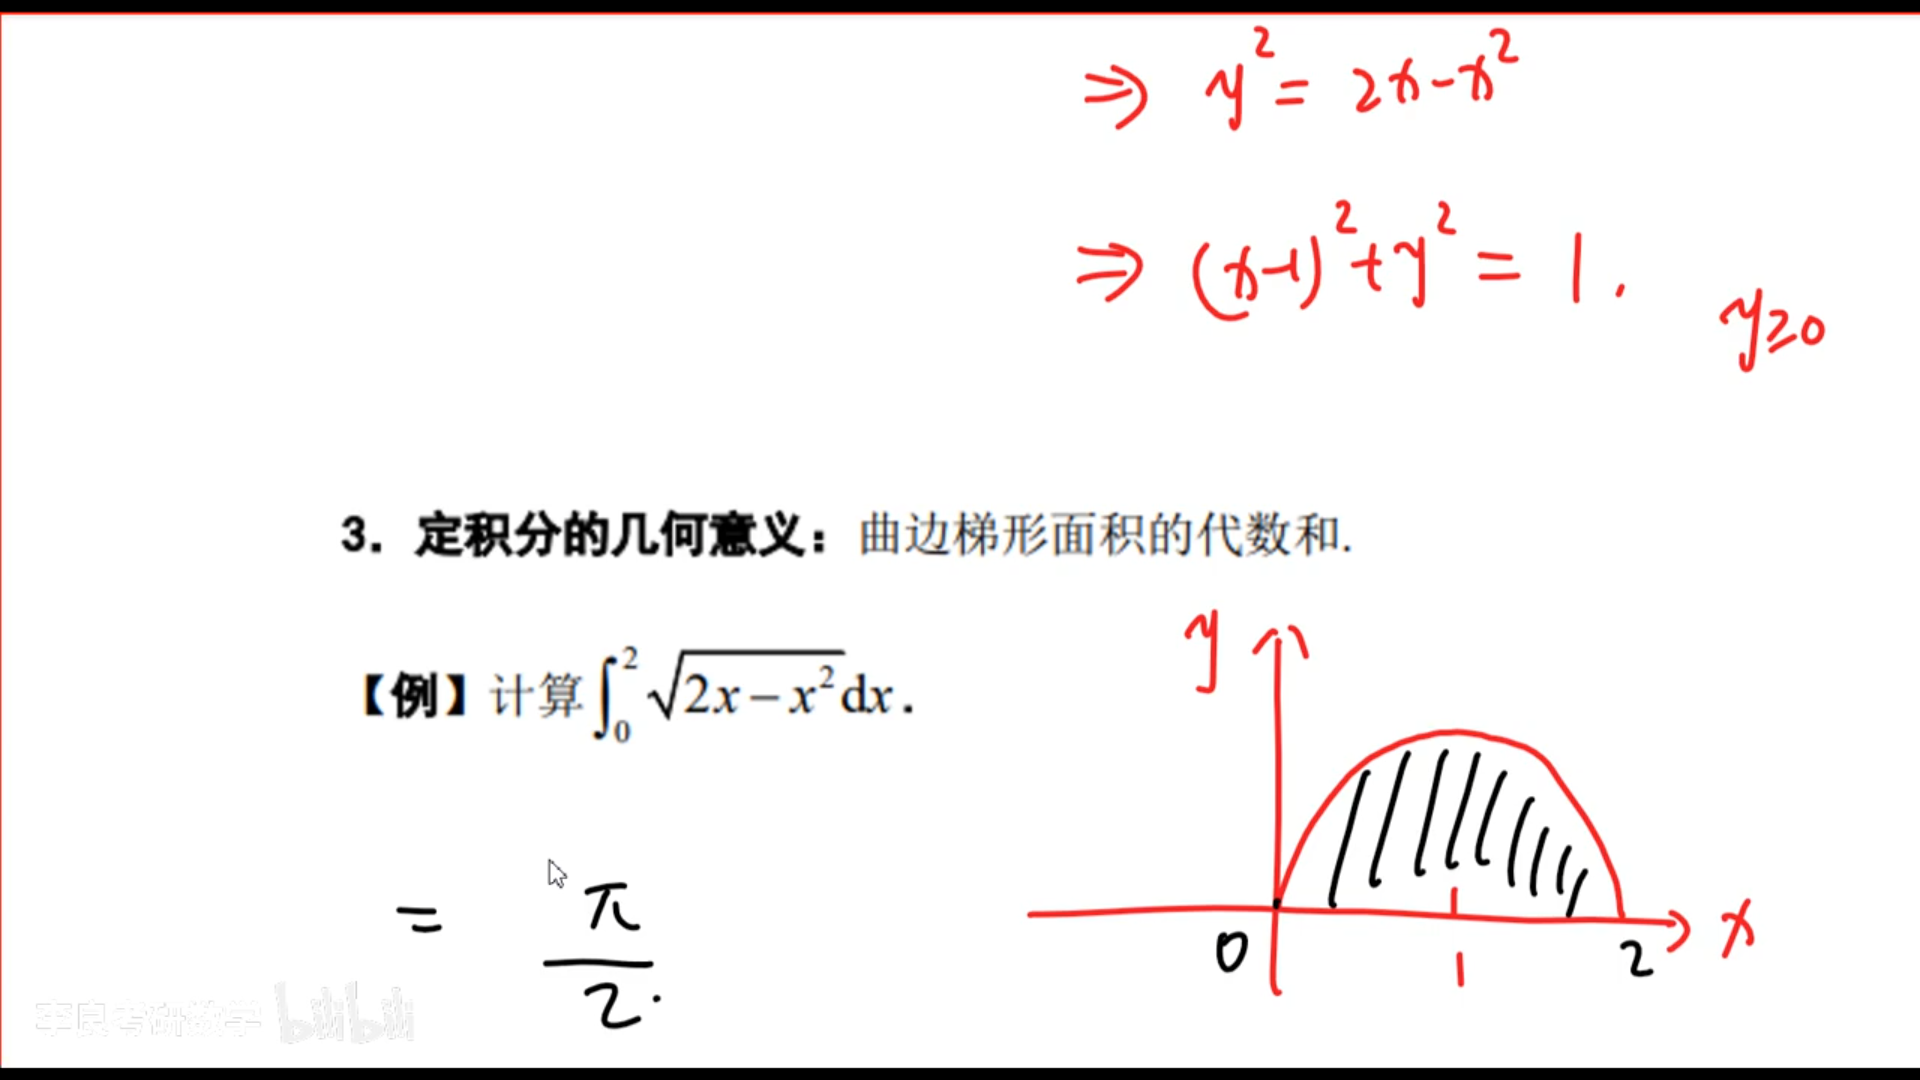 ⇒ y² = 2x - x²
⇒ (x-1)² + y² = 1.
y≥0
3. 定积分的几何意义：曲边梯形面积的代数和.
【例】计算∫₀² √(2x − x²) dx.
= π/2.
y
0
1
2
x
李良考研数学 bilibili